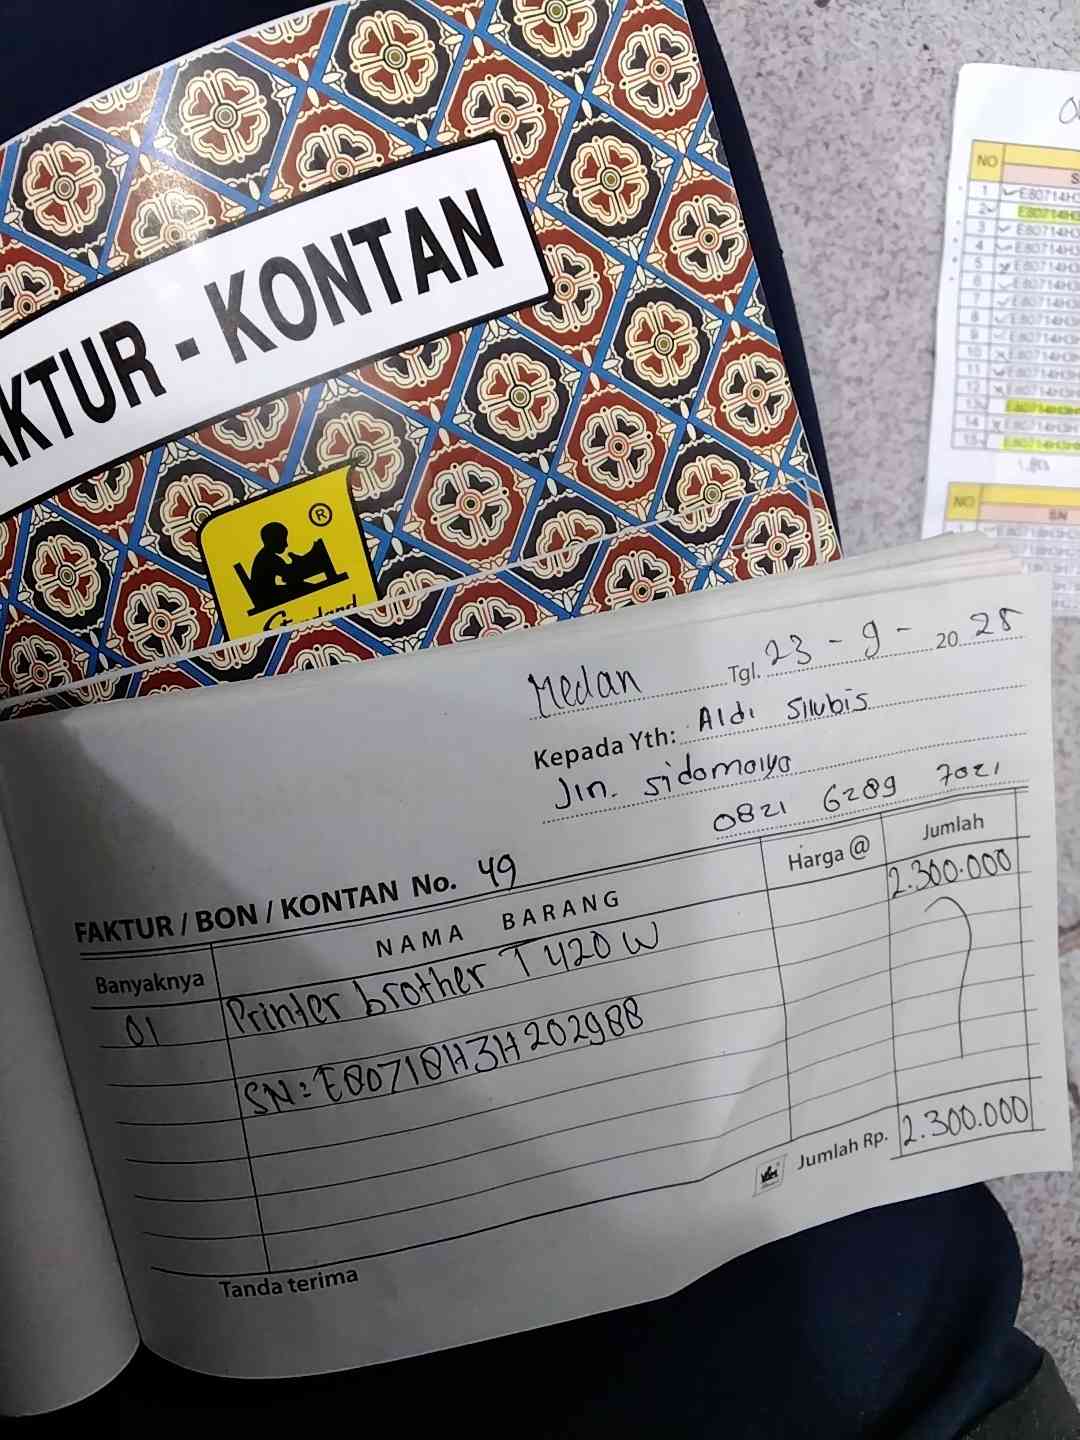 FAKTUR - KONTAN
®
Standard
Medan Tgl. 23 - 9 - 20 25
Kepada Yth: Aldi Silubis
Jln. sidomolyo
0821 6289 7021
FAKTUR / BON / KONTAN No. 49
Banyaknya NAMA BARANG Harga @ Jumlah
01 Printer brother T 420 W 2.300.000
SN: E80718H3H202988
Jumlah Rp. 2.300.000
Tanda terima
NO
S
1 E80714H3
2 E80714H3
3 E80714H3
4 E80714H3
5 E80714H3
6 E80714H3
7 E80714H3
8 E80714H3
9 E80714H3
10 E80714H3
11 E80714H3
12 E80714H3
13 E80714H3
14 E80714H3
15 E80714H3
NO
SN
1